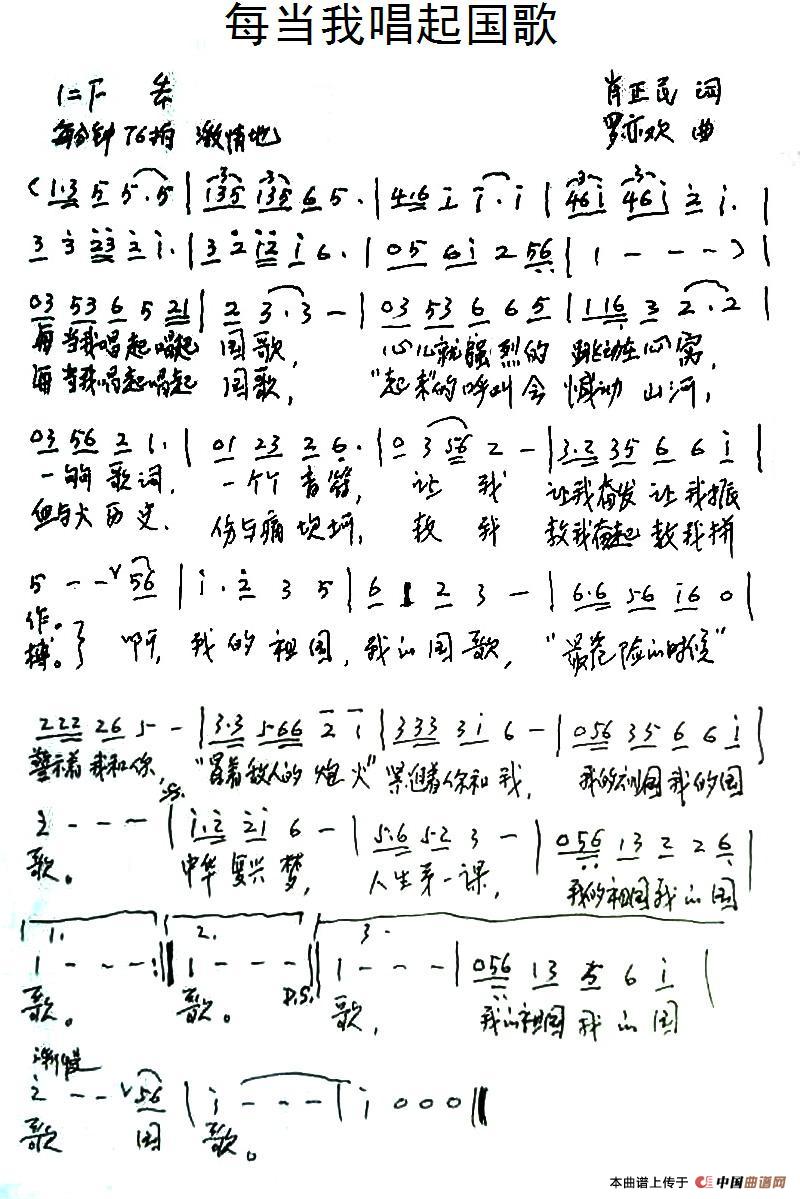 每当我唱起国歌
1=F 4/4
肖正民 词
每分钟76拍 激情地
罗亦欢 曲
(1·3 5 5·5|135 135 6 5·|4·6 i i·i|46i 46i 2 i·|
3 3 23 2 i·|3 2 i2 i 6·|05 6i 2 56|1 - - -)|
03 53 6 5 21|2 3·3 -|03 53 6 6 5|116 3 2·2|
每当我唱起唱起 国歌, 心儿就强烈的 跳动在心窝,
每当我唱起唱起 国歌, "起来"的呼叫会 憾动 山河,
03 56 2 1·|01 23 2 6·|0 3 56 2 -|3·2 35 6 6 i|
一句句 歌词, 一个个 音符, 让 我 让我奋发 让我振
血与火 历史、 伤与痛 坎坷, 教 我 教我奋起 教我拼
5 - - v 56|i·2 3 5|6 1 2 3 -|6·6 56 i6 0|
作。
搏。} 啊, 我 的 祖 国, 我的国歌, "最危险的时候"
222 26 5 -|3·3 566 2 i|333 3i 6 -|056 35 6 6 i|
警示着 我和你, "冒着敌人的 炮 火" 紧迫着你和我, 我的祖国 我的国
2 - - -|i·2 2i 6 -|5·6 5·2 3 -|056 13 2 2 6|
歌。 中华 复兴 梦, 人生第一课, 我的祖国我的国
1. 2. 3.
1 - - -:||1 - - -||1 - - -|056 13 5 6 i|
歌。 歌。 D.S. 歌, 我的祖国 我的国
渐慢
2 - - v 56|i - - -|i 0 0 0||
歌 国 歌。
本曲谱上传于 中国曲谱网